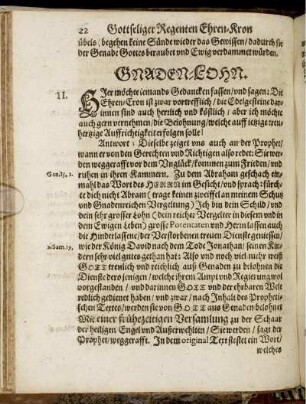 22 Gottseliger Regenten Ehren-Kron
übels/ begehen keine Sünde wieder das Gewissen/ dadurch sie
der Genade Gottes beraubet und Ewig verdammet würden.
GNADEN-LOHN.
II. Hier möchte iemands Gedancken fassen/ und sagen: Die
Ehren-Cron ist zwar vortrefflich/ die Edelgesteine dar-
innen sind auch herrlich und köstlich; aber ich möchte
auch gern vernehmen/ die Belohnung/ welche auff itzige treu-
hertzige Auffrichtigkeit erfolgen solle!
Antwort: Dieselbe zeiget uns auch an der Prophet/
wann er von den Gerechten und Richtigen also redet: Sie wer-
den weggerafft vor dem Unglück/ kommen zum Frieden/ und
ruhen in ihren Kammern. Zu dem Abraham geschach ein-
Gen. 15, 1. mahl das Wort des HERRN im Gesicht/ und sprach: fürch-
te dich nicht Abram (trage keinen zweiffel an meinem Schutz
und Gnadenreichen Vergeltung) Ich bin dein Schild/ und
dein sehr grosser Lohn (dein reicher Vergelter in diesem und in
dem Ewigen Leben) grosse Potentaten und Herrn lassen auch
die Hinderlassene/ der Verstorbenen treuen Diener geniessen/
2. Sam. 19, wie der König David nach dem Todt Jonathan; seinen Kin-
dern sehr viel gutes gethan hat: Also und noch viel mehr weiß
GOTT trewlich und reichlich auß Genaden zu belohnen die
Dienste derojenigen/ welche ihrem Ampt und Regierung wol
vorgestanden/ und darinnen GOTT und der ehrbaren Welt
redlich gedienet haben/ und zwar/ nach Inhalt des Propheti-
schen Textes/ werden sie von GOTT aus Genaden belohnet
Mit einer frühezeitigen Versamlung zu der Schaar
der heiligen Engel und Außerwehlten/ Sie werden/ sagt der
Prophet/ weggerafft. In dem original Text stehet ein Wort/
welches